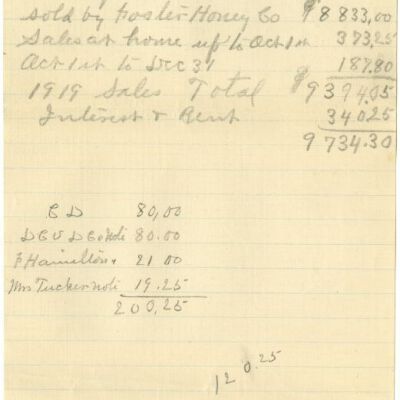 sold by Foster Honey Co $8 833,00
Sales at home up to Oct 1st 373,25
Oct 1st to Dec 31 187.80
1919 Sales Total $9394.05
Interest & Rent 340.25
9 734.30
C D 80,00
D C note 80.00
F Hamilton 21 00
Mrs Tucker note 19.25
200,25
120.25